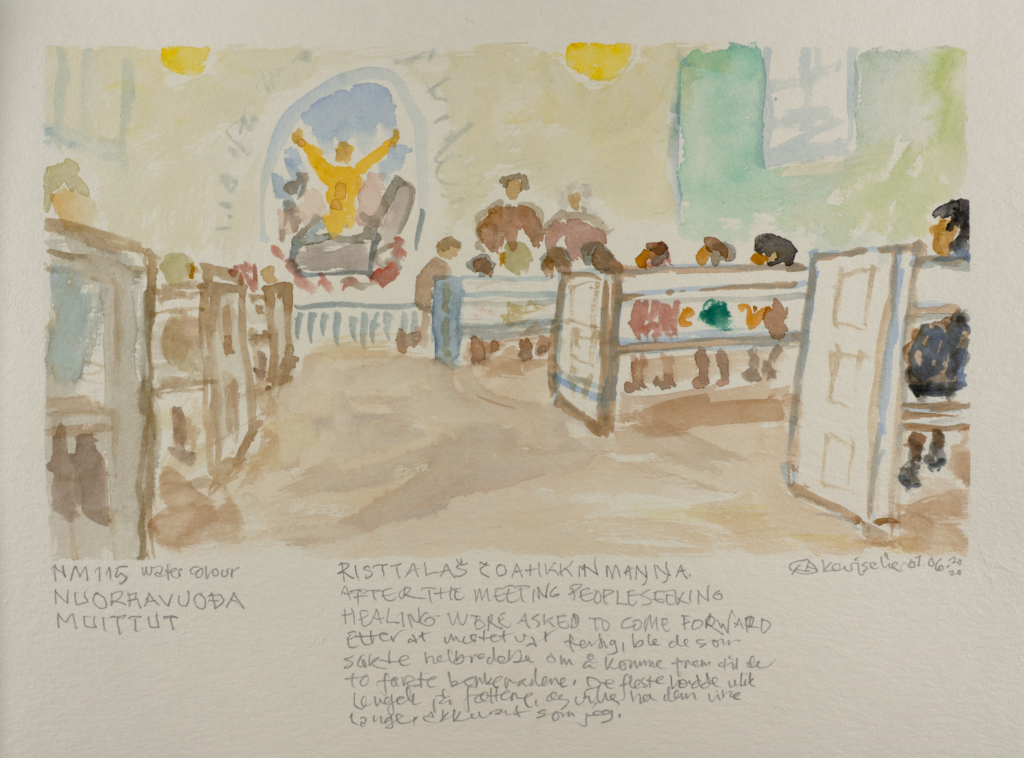 NM115 water colour
NUORRAVUOĐA
MUITTUT
RISTTALAŠ ČOAHKKINMANNA.
AFTER THE MEETING PEOPLE SEEKING
HEALING WERE ASKED TO COME FORWARD
Etter at møtet var ferdig, ble de som
søkte helbredelse om å komme frem til de
to første benkeradene. De fleste hadde ulik
lengde på føttene, og ville ha dem like
lange, akkurat som jeg.
07.06.2020